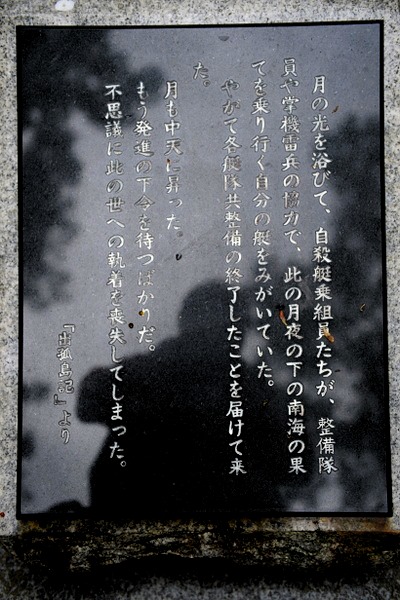 月の光を浴びて、自殺艇乗組員たちが、整備隊
員や掌機雷兵の協力で、此の月夜の下の南海の果
てを乗り行く自分の艇をみがいていた。
やがて各艇隊共整備の終了したことを届けて来
た。
月も中天に昇った。
もう発進の下令を待つばかりだ。
不思議に此の世への執着を喪失してしまった。
『出孤島記』より